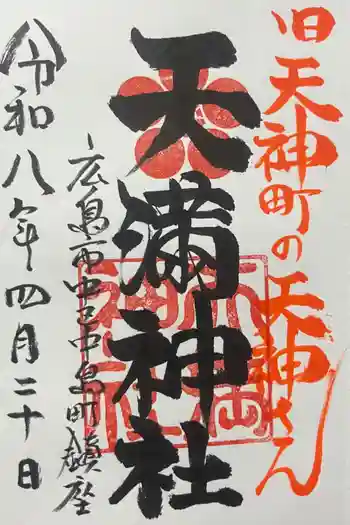 旧天神町の天神さん
天満神社
広島市中区中島町鎮座
令和八年四月二十日